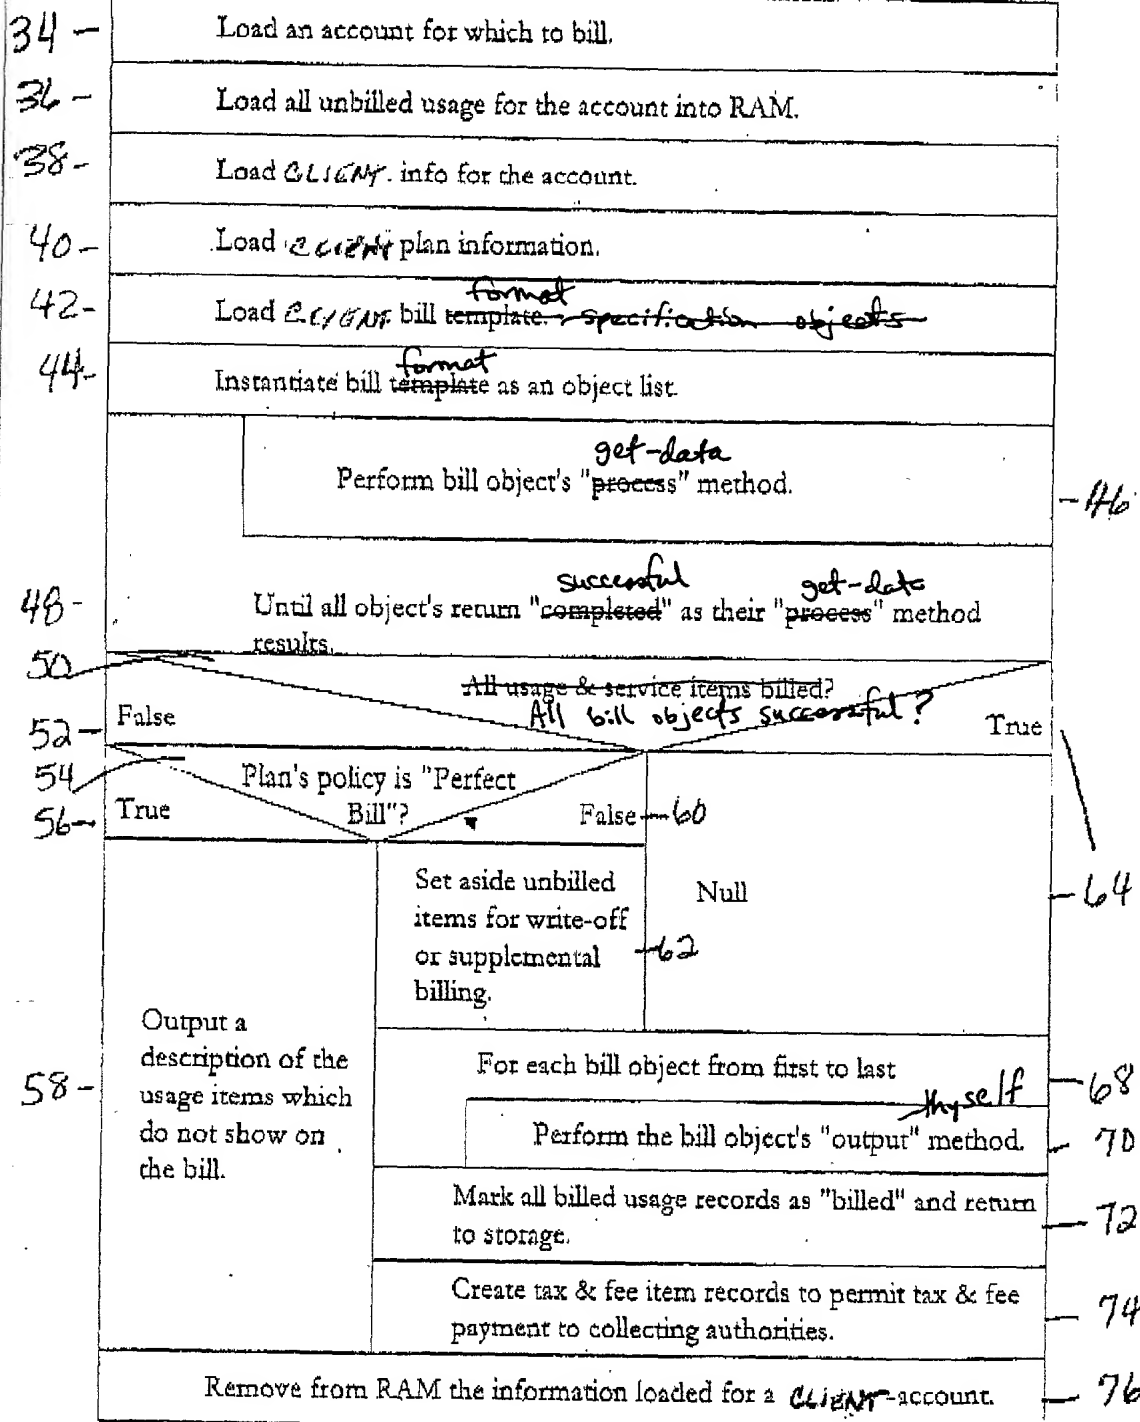 34 - Load an account for which to bill.
36 - Load all unbilled usage for the account into RAM.
38 - Load CLIENT info for the account.
40 - Load CLIENT plan information.
format
42 - Load CLIENT bill template. specification objects
format
44 - Instantiate bill template as an object list.
get-data
Perform bill object's "process" method.
- 46
successful get-data
48 - Until all object's return "completed" as their "process" method
results.
50
All usage & service items billed?
All bill objects successful?
52 - False
True
54 Plan's policy is "Perfect
56 - True Bill"? False - 60
Set aside unbilled
items for write-off
or supplemental
billing.
- 62
Null
- 64
Output a
description of the
usage items which
do not show on
the bill.
58 -
For each bill object from first to last
- 68
thyself
Perform the bill object's "output" method.
- 70
Mark all billed usage records as "billed" and return
to storage.
- 72
Create tax & fee item records to permit tax & fee
payment to collecting authorities.
- 74
Remove from RAM the information loaded for a CLIENT-account.
- 76